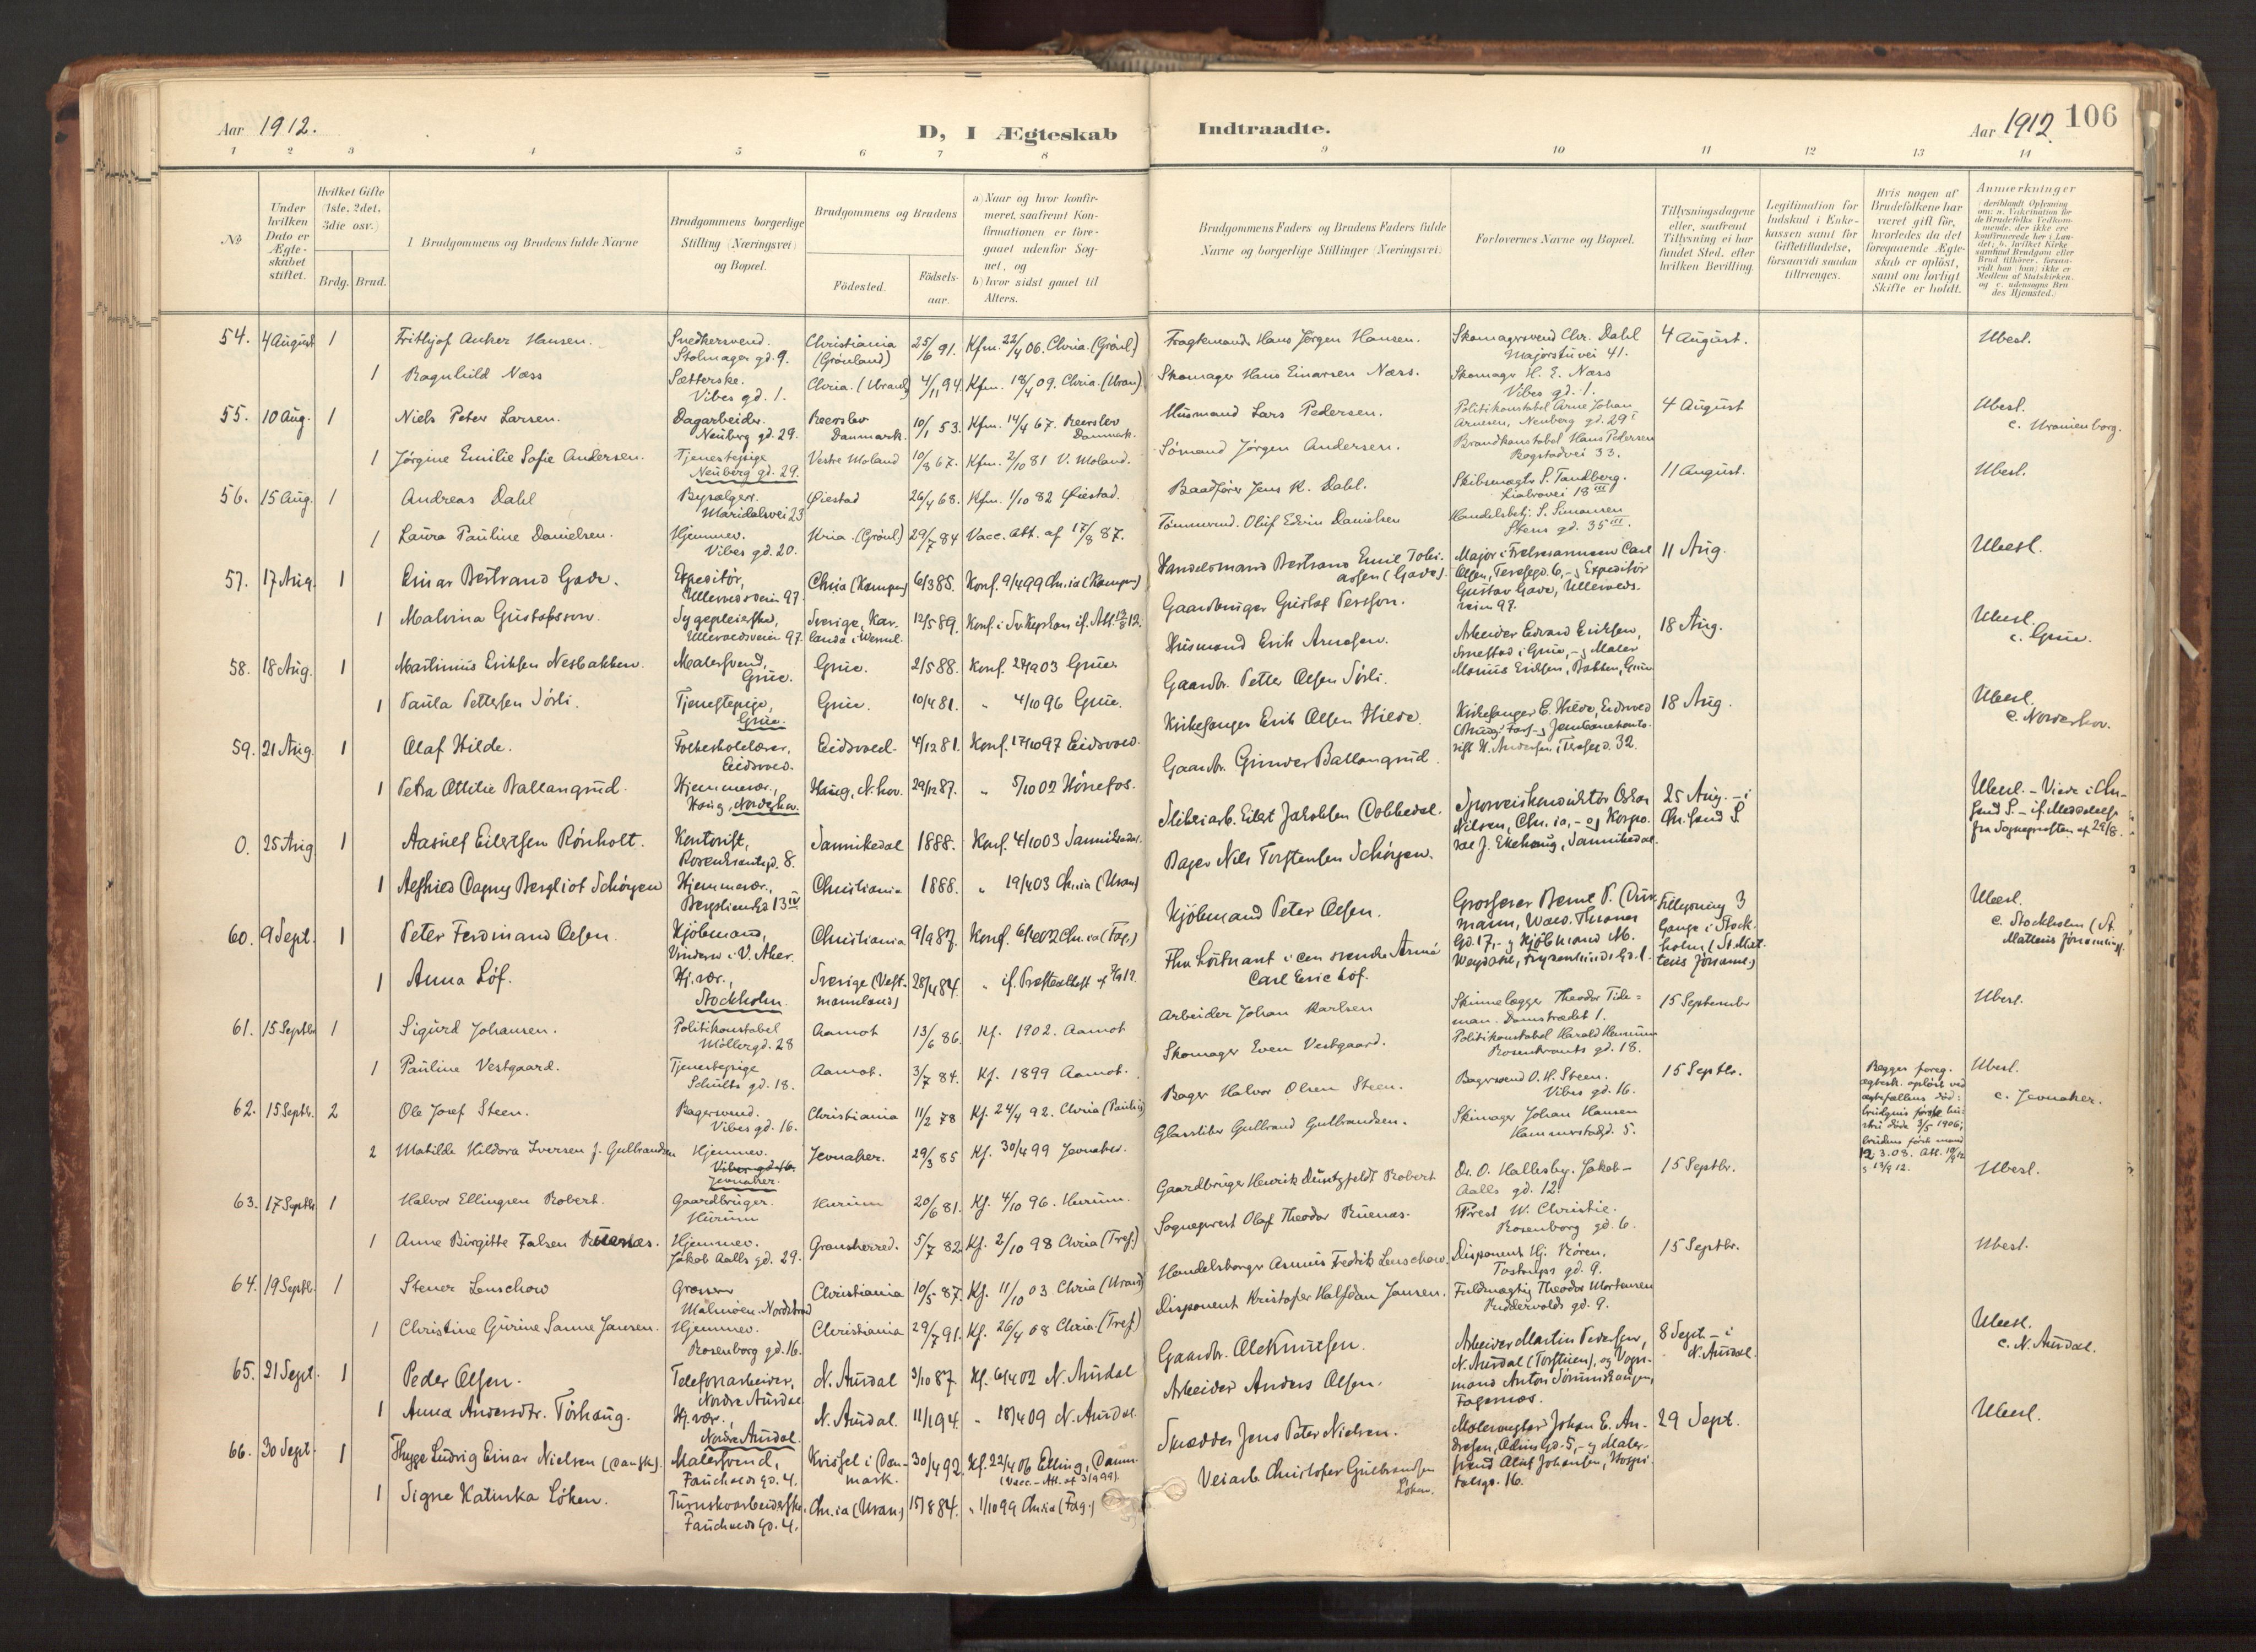 Aar 1912.
D, I Ægteskab
Indtraadte.
Aar 1912. 106
1 2 3 4 5 6 7 8 9 10 11 12 13 14
No.
Under hvilken Dato er Ægteskabet stiftet.
Hvilket Gifte (1ste, 2det, 3die osv.)
Brdg. Brud.
1 Brudgommens og Brudens fulde Navne
Brudgommens borgerlige Stilling (Næringsvei) og Bopæl.
Brudgommens og Brudens
Fødested.
Fødselsaar.
a) Naar og hvor konfirmeret, saafremt Konfirmationen er foregaaet udenfor Sognet, og b) hvor sidst gaaet til Alters.
Brudgommens Faders og Brudens Faders fulde Navne og borgerlige Stillinger (Næringsvei)
Forlovernes Navne og Bopæl.
Tillysningsdagene eller, saafremt Tillysning ei har fundet Sted, efter hvilken Bevilling.
Legitimation for Indskud i Enkekassen samt for Giftetilladelse, forsaavidt saadan tiltrænges.
Hvis nogen af Brudefolkene har været gift før, hvorledes da det foregaaende Ægteskab er opløst, samt om lovligt Skifte er holdt.
Anmærkninger
54. 4 August 1 Frithjof Anker Hansen. Snedkersvend. Stolmager gd. 9. Christiania (Grønland) 25/6 91. Kfm. 22/4 06. Chria. (Grønl.) Fragtemand Hans Jørgen Hansen. Skomagersvend Chr. Dahl Majorstuvei 41. 4 August. Ubesl.
1 Ragnhild Næss Sætterske. Vibes gd. 1. Chria. (Uran) 4/11 94. Kfm. 18/4 09. Chria. (Uran) Skomager Hans Einarsen Næss. Skomager H. E. Næss Vibes gd. 1.
55. 10 Aug. 1 Niels Peter Larsen. Dagarbeider. Neuberg gd. 29. Reerslev Danmark. 10/1 53. Kfm. 14/4 67. Reerslev Danmark. Husmand Lars Pedersen. Politikonstabel Arne Johan Arnesen, Neuberg gd. 29 I 4 August Ubesl. c. Uranienborg.
1 Jørgine Emilie Sofie Andersen. Tjenestepige Neuberg gd. 29. Vestre Moland 10/8 67. Kfm. 2/10 81 V. Moland. Sømand Jørgen Andersen. Brandkonstabel Hans Pedersen Bogstadvei 33.
56. 15 Aug. 1 Andreas Dahl Bysælger. Maridalsvei 23 Øiestad 26/4 68. Kfm. 1/10 82 Øiestad. Baadfører Jens K. Dahl. Skibsmægler S. Tandberg. Liabrovei 18 III 11 August. Ubesl.
1 Laura Pauline Danielsen. Hjemmev. Vibes gd. 20. Kria. (Grønl) 29/7 84 Vacc. Att. af 17/8 87. Tømmermd. Oluf Edvin Danielsen Handelsbetj. S. Simonsen Stens gd. 35 III.
57. 17 Aug. 1 Einar Bertrand Gade. Expeditør, Ullevoldsveien 97. Chria (Kampen) 6/3 85. Konf. 9/4 99 Chr.ia (Kampen) Handelsmand Bertrand Emil Tobiassen (Gade). Major i Frelsesarmeen Carl Olsen, Theresegd. 6, - og Expeditør Gustav Gade, Ullevoldsveien 97. 11 Aug. Ubesl.
1 Malvina Gustafsson. Sygepleierske, Ullevoldsveien 97. Sverige, Karlanda i Wermland 12/5 89. Gaardbruger Gustaf Persson.
58. 18 Aug. 1 Martinius Eriksen Nesbakken. Malersvend, Grue. Grue. 2/5 88. Konf. 28/9 03 Grue Husmand Erik Arnesen. Arbeider Edvard Eriksen, Smestad i Grue, - og Maler Marius Eriksen, Bakken, Grue 18 Aug. Ubesl. c. Grue.
1 Paula Pettersen Sørli. Tjenestepige, Grue. Grue. 10/4 81. " 4/10 96 Grue. Gaardbr. Petter Olsen Sørli.
59. 21 Aug. 1 Olaf Hilde. Folkeskolelærer, Eidsvold. Eidsvold. 4/12 81. Konf. 17/10 97 Eidsvold. Kirkesanger Erik Olsen Hilde. Kirkesanger E. Hilde, Eidsvold 18 Aug. Ubesl. c. Norderhov.
1 Petra Otilie Ballangrud. Hjemmevær., Haug, Norderhov. Haug, N.hov. 29/12 87. " 5/10 02 Hønefos. Gaardbr. Gunder Ballangrud.
0. 25 Aug 1 Aasulf Eilertsen Rönholt. Kontorist, Rosenkrantzgd. 8. Sannikedal 1888. Konf. 4/10 03 Sannikedal. Sliberiarb. Eilert Jakobsen Dobbedal. Sporveiskonduktør Oskar Nilsen, Chr.ia, - og Korporal J. Ekehaug, Sannikedal. 25 Aug. - i Chr.sand S. Ubesl. - Viede i Chr.sand S. - if. Meddelelse fra Sogneprosten af 29/8.
1 Aasfrid Dagny Bergliot Schøyen Hjemmevær., Bergsliensgd 13 IV Christiania 1888. " 19/4 03 Chr.ia (Uran) Bager Nils Torstensen Schøyen.
60. 9 Sept. 1 Peter Ferdinand Olsen. Kjøbmand, Vinderen i V. Aker. Christiania 9/9 87. Konf. 6/4 02 Chr.ia (Fag.) Kjøbmand Peter Olsen. Grosserer Bernt P. Duumann, Wald. Thranes Gd. 17, - og Kjøbmand M. Weydahl, Fryzenlunds Gd. 1. Tillysning 3 Gange i Stockholm (St. Matteus Församl.) Ubesl. c. Stockholm (St. Matteus Församling).
1 Anna Löf. Hj.vær., Stockholm. Sverige (Vestmannland) 28/4 84. " if. Prestattest af 7/9 12. Fhv. Löitnant i den svenske Armé Carl Eric Löf.
61. 15 Septbr 1 Sigurd Johansen. Politikonstabel Møllergd. 28 Aamot 13/6 86. Kf. 1902. Aamot Arbeider Johan Karlsen Skinnelægger Theodor Tideman. Damstrædet 1. 15 September Ubesl.
1 Pauline Vestgaard. Tjenestepige Schults gd. 18. Aamot. 3/7 84. Kf. 1899 Aamot. Skomager Even Vestgaard. Politikonstabel Harald Hemma Rosenkrants gd. 18.
62. 15 Septbr. 2 Ole Josef Steen. Bagersvend. Vibes gd. 16. Christiania 11/2 78 Kf. 24/4 92. Chria (Paulus) Bager Halvor Olsen Steen. Bagersvend O. H. Steen. Vibes gd. 16. 15 Septbr. Begges foreg. ægtesk. opløst ved ægtefællens død: brudgms første hustru døde 3/5 1906; brudens første mand 12.3.08. Ubesl. c. Jevnaker.
2 Matilde Hildora Iversen f. Gulbrandsen Hjemmev. Vibes gd. 16. Jevnaker. Jevnaker. 29/3 85 Kf. 30/4 99 Jevnaker. Glassliber Gulbrand Gulbrandsen. Skimager Johan Hansen Hammerstadgd. 5.
63. 17 Septbr. 1 Halvor Ellingsen Robert. Gaardbruger. Hurum Hurum 20/6 81. Kf. 4/10 96. Hurum. Gaardbruger Henrik Duntzfeldt Robert Dr. O. Hallesby. Jakob-Aalls gd. 12. 15 Septbr. Ubesl.
1 Anne Birgitte Falsen Ruenæs. Hjemmev. Jakob Aalls gd. 29. Gransherred. 5/7 82 Kf. 2/10 98 Chria (Tref.) Sogneprest Olaf Theodor Ruenæs. Prest W. Christie. Rosenborg gd. 6.
64. 19 Septbr. 1 Stener Lenschow Malmøen. Nordstrand Christiania 10/5 87. Kf. 11/10 03 Chria (Uran) Handelsborger Asmus Fredrik Lenschow. Disponent Hj. Røren. Tostrups gd. 9. 15 Septbr. Ubesl.
1 Christine Gurine Sanne Jansen. Hjemmev. Rosenborg gd. 16. Christiania 29/7 91. Kf. 26/4 08 Chria. (Tref.) Disponent Kristofer Halfdan Jansen. Fuldmægtig Theodor Mortensen Ruddervolds gd. 9.
65. 21 Sept. 1 Peder Olsen. Telefonarbeider, Nordre Aurdal N. Aurdal 3/10 87. Kf. 6/4 02 N. Aurdal Gaardbr. Ole Knutsen. Arbeider Martin Pedersen, N. Aurdal (Torstuen), og Vognmand Anton Sømmehaugen, Fagernes. 8 Sept. - i N. Aurdal. Ubesl. c. N. Aurdal.
1 Anna Andersdtr. Tørhaug. Hj.vær., Nordre Aurdal. N. Aurdal. 11/1 94. " 18/4 09 N. Aurdal. Arbeider Anders Olsen.
66. 30 Sept. 1 Thyge Ludvig Einar Nielsen (dansk). Malersvend, Fauchaldsgd. 4. Krissel i Danmark. 30/4 92. Kf. 22/4 06 Elling, Danm. (Vacc. - Att. af 3/9 99). Smedder Jens Peter Nielsen. Malermester Johan E. Andresen, Odinsgd. 5, - og Malersvend Olaf Johansen, Hospitalsgd. 16. 29 Sept. Ubesl.
1 Signe Katinka Løken. Fauchaldsgd. 4. Chr.ia (Uran.) 15/8 84. " 1/10 99 Chr.ia (Fag.) Veiarb. Christofer Gulbrandsen Løken.